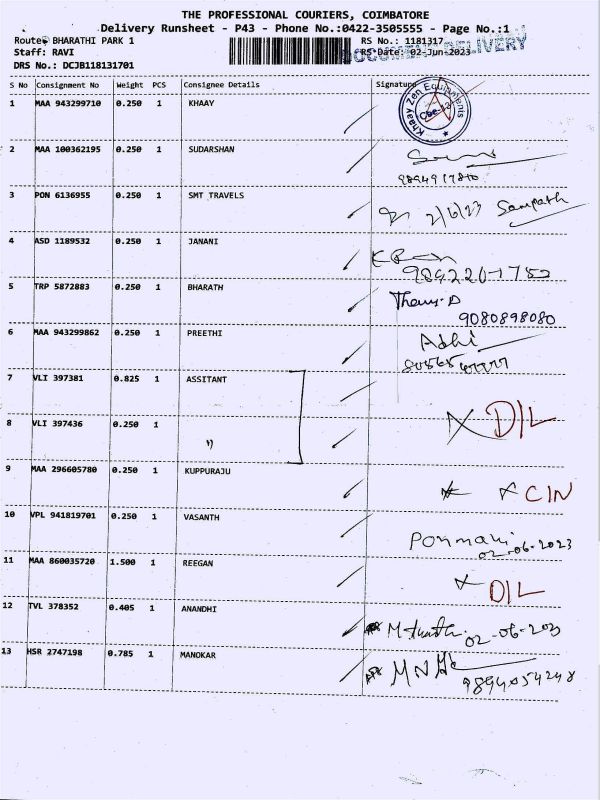 THE PROFESSIONAL COURIERS, COIMBATORE
Delivery Runsheet - P43 - Phone No.:0422-3505555 - Page No.:1
Route: BHARATHI PARK 1 RS No.: 1181317
Staff: RAVI RS Date: 02-Jun-2023
DOCUMENT DELIVERY
DRS No.: DCJB118131701
S No Consignment No Weight PCS Consignee Details Signature
Khaay Zen Equipments
Cbe-12
1 MAA 943299710 0.250 1 KHAAY
2 MAA 100362195 0.250 1 SUDARSHAN
3 PON 6136955 0.250 1 SMT TRAVELS 2/6/23 Sampath
4 ASD 1189532 0.250 1 JANANI
5 TRP 5872883 0.250 1 BHARATH
9080898080
6 MAA 943299862 0.250 1 PREETHI Adhi
7 VLI 397381 0.825 1 ASSITANT
8 VLI 397436 0.250 1 " D/L
9 MAA 296605780 0.250 1 KUPPURAJU CIN
10 VPL 941819701 0.250 1 VASANTH Ponmani
02-06-2023
11 MAA 860035720 1.500 1 REEGAN D/L
12 TVL 378352 0.405 1 ANANDHI
13 HSR 2747198 0.785 1 MANOKAR
9894054248